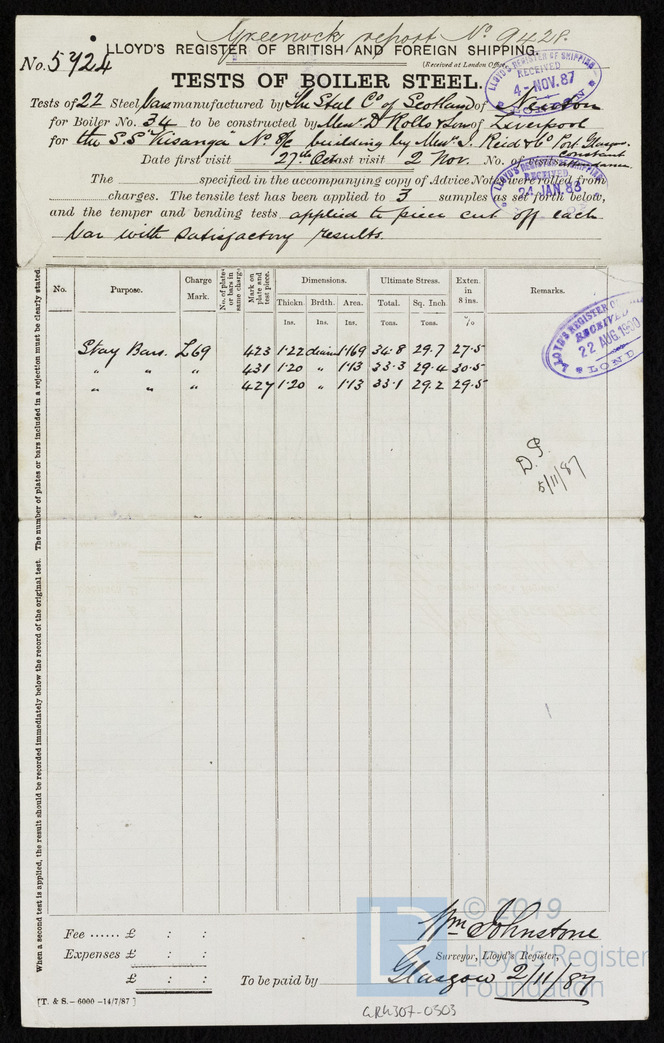 Greenock report No. 9428.
No. 5924
LLOYD'S REGISTER OF BRITISH AND FOREIGN SHIPPING.
(Received at London Office
LLOYD'S REGISTER OF SHIPPING
RECEIVED
4-NOV.87
LONDON
TESTS OF BOILER STEEL.
Tests of 22 Steel bars manufactured by The Steel Co of Scotland of Newton
for Boiler No. 34 to be constructed by Messrs D Rollo & Sons of Liverpool
for the S.S "Kisanga" No. building by Messrs J. Reid & Co Port Glasgow.
Date first visit 27th Oct last visit 2 Nov. No. of visits constant attendance
LLOYD'S REGISTER OF SHIPPING
RECEIVED
24 JAN.88
The specified in the accompanying copy of Advice Note were rolled from
charges. The tensile test has been applied to 3 samples as set forth below,
and the temper and bending tests applied to piece cut off each
bar with satisfactory results.
When a second test is applied, the result should be recorded immediately below the record of the original test. The number of plates or bars included in a rejection must be clearly stated.
No. Purpose. Charge Mark. No. of plates or bars in same charge. Mark on plate and test piece. Dimensions. Ultimate Stress. Exten. in 8 ins. Remarks.
Thickn. Brdth. Area. Total. Sq. Inch.
Ins. Ins. Ins. Tons. Tons. %
Stay Bars. L69 423 1·22 diam 1·169 34·8 29.7 27·5
" " " 431 1·20 " 1·13 33·3 29·4 30·5
" " " 427 1·20 " 1·13 33·1 29·2 29·5
LLOYD'S REGISTER OF
RECEIVED
22 AUG.1930
LOND
D.P.
5/11/87
Fee ...... £ : :
Expenses £ : :
£ : :
To be paid by
Wm Johnstone
Surveyor, Lloyd's Register,
Glasgow 2/11/87
[T. & S.—6000—14/7/87]
GRK307-0303
LR
© 2019
Lloyd's Register
Foundation